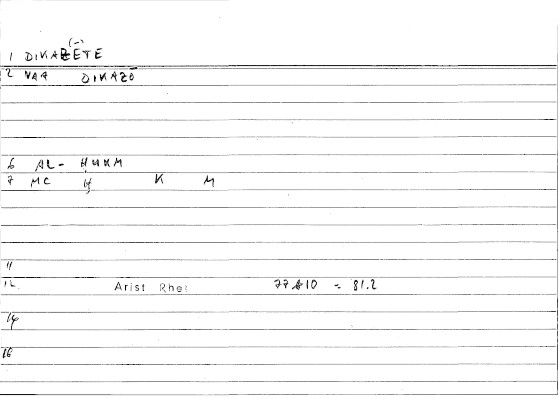 1 DIKAZETE
2 VAA DIKAZŌ
6 AL- ḤUKM
7 MC Ḥ K M
11
12. Arist Rhet 77 10 = 81.2
14
16